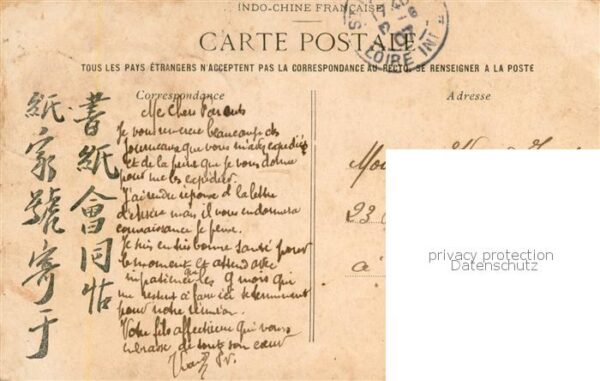 INDO-CHINE FRANÇAISE
CARTE POSTALE
TOUS LES PAYS ÉTRANGERS N'ACCEPTENT PAS LA CORRESPONDANCE AU RECTO, SE RENSEIGNER A LA POSTE
Correspondance
Adresse
LOIRE INF
Mes Chers Parents
Je vous remercie beaucoup des
journeaux que vous m'avez expédiés
et de la peine que je vous donne
pour me les expédier.
J'ai rendu réponse à la lettre
mais il vous en donnera
connaissance je pense.
Je suis en très bonne santé pour
le moment et attend avec
impatience les 9 mois qui
me restent à faire ici
pour notre réunion.
Votre fils affectueux qui vous
embrasse de tout son cœur
書紙會同帖
紙家號寄于
23
à
privacy protection
Datenschutz